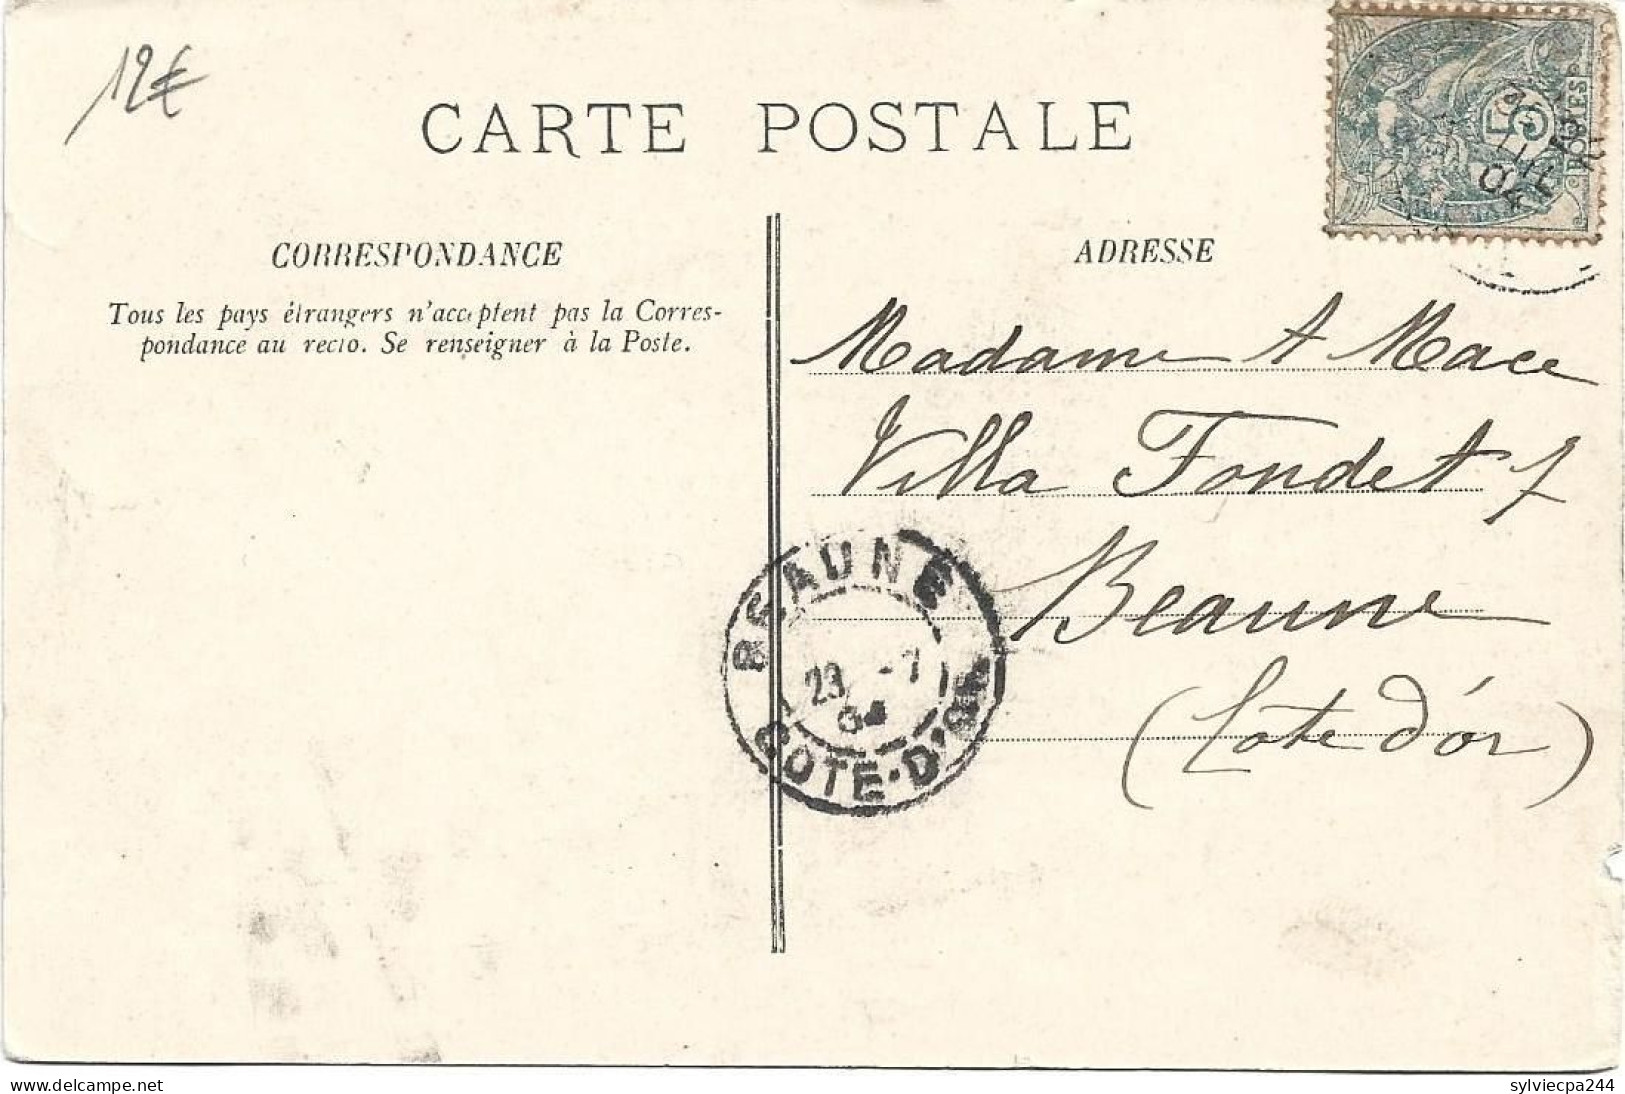 12€
CARTE POSTALE
CORRESPONDANCE
Tous les pays étrangers n'acceptent pas la Corres-
pondance au recto. Se renseigner à la Poste.
ADRESSE
5
POSTES
Madame A Mace
Villa Fondet
Beaune
(Cote d'or)
BEAUNE
23 -7
04
COTE-D'OR
www.delcampe.net
sylviecpa244